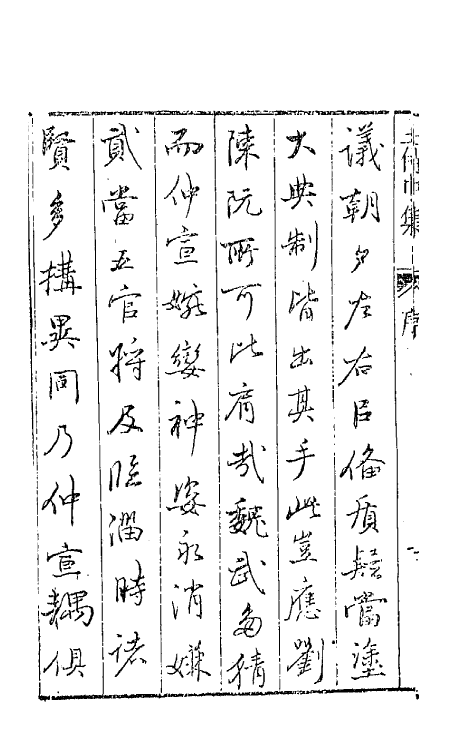 王侍中集 序
議朝夕左右臣備質疑當塗
大典制皆出其手此豈應劉
陳阮所可比肩哉魏武多猜
而仲宣婉孌神姿永消嫌
貳當五官將及臨淄時諸
賢多搆異同乃仲宣耦俱